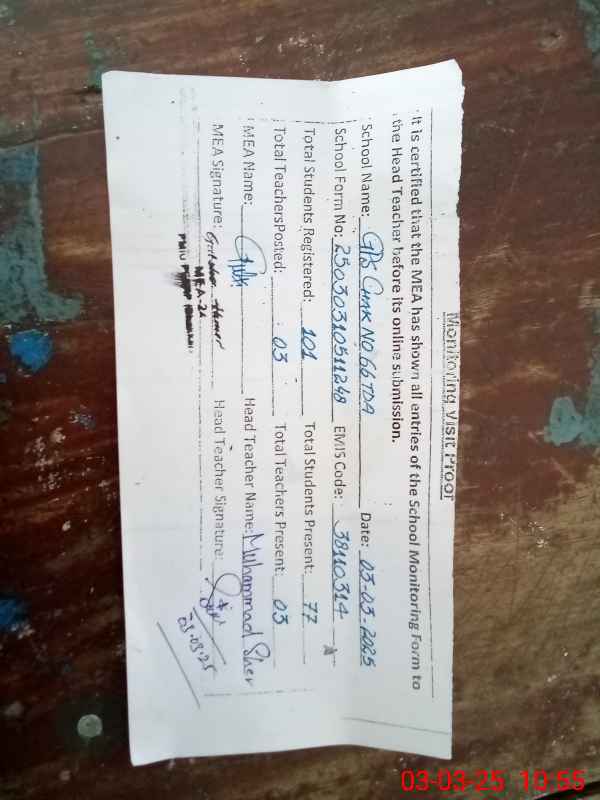 Monitoring Visit Proof
It is certified that the MEA has shown all entries of the School Monitoring Form to
the Head Teacher before its online submission.
School Name: GPS Chak No 66 TDA Date: 03-03-2025
School Form No: 25030310511248 EMIS Code: 38110314
Total Students Registered: 101 Total Students Present: 77
Total TeachersPosted: 03 Total Teachers Present: 03
MEA Name: Head Teacher Name: Muhammad Sher
MEA Signature: Head Teacher Signature:
MEA-24
03-03-25
03-03-25 10:55